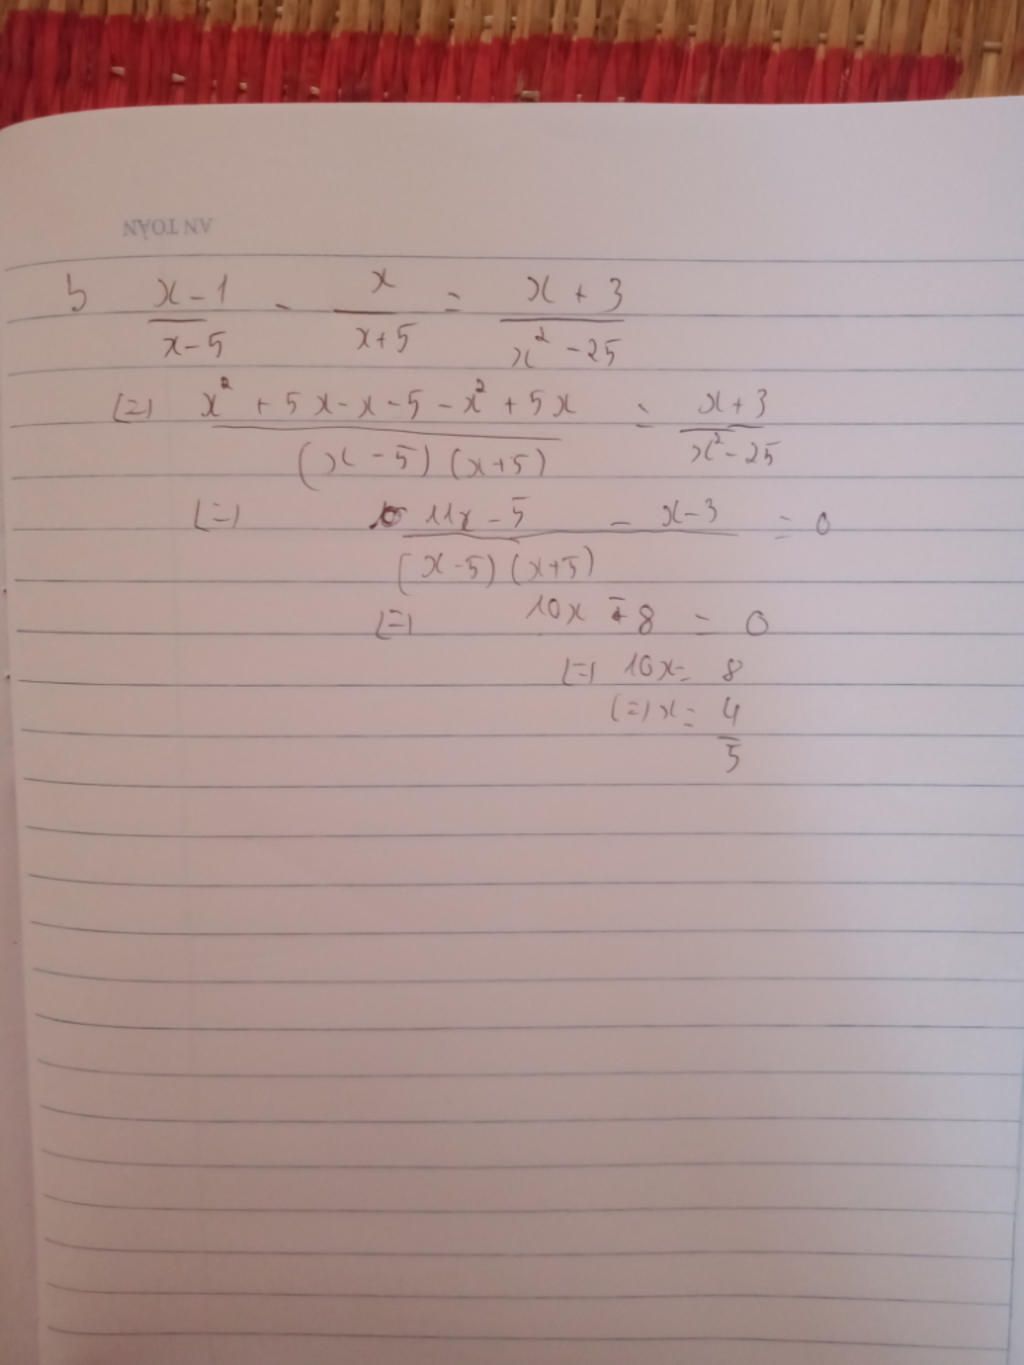 AN TOÀN
b x-1/x-5 - x/x+5 = x+3/x²-25
(=) x²+5x-x-5-x²+5x/(x-5)(x+5) = x+3/x²-25
(=) 11x-5-x-3/(x-5)(x+5) = 0
(=) 10x-8 = 0
(=) 10x = 8
(=) x = 4/5